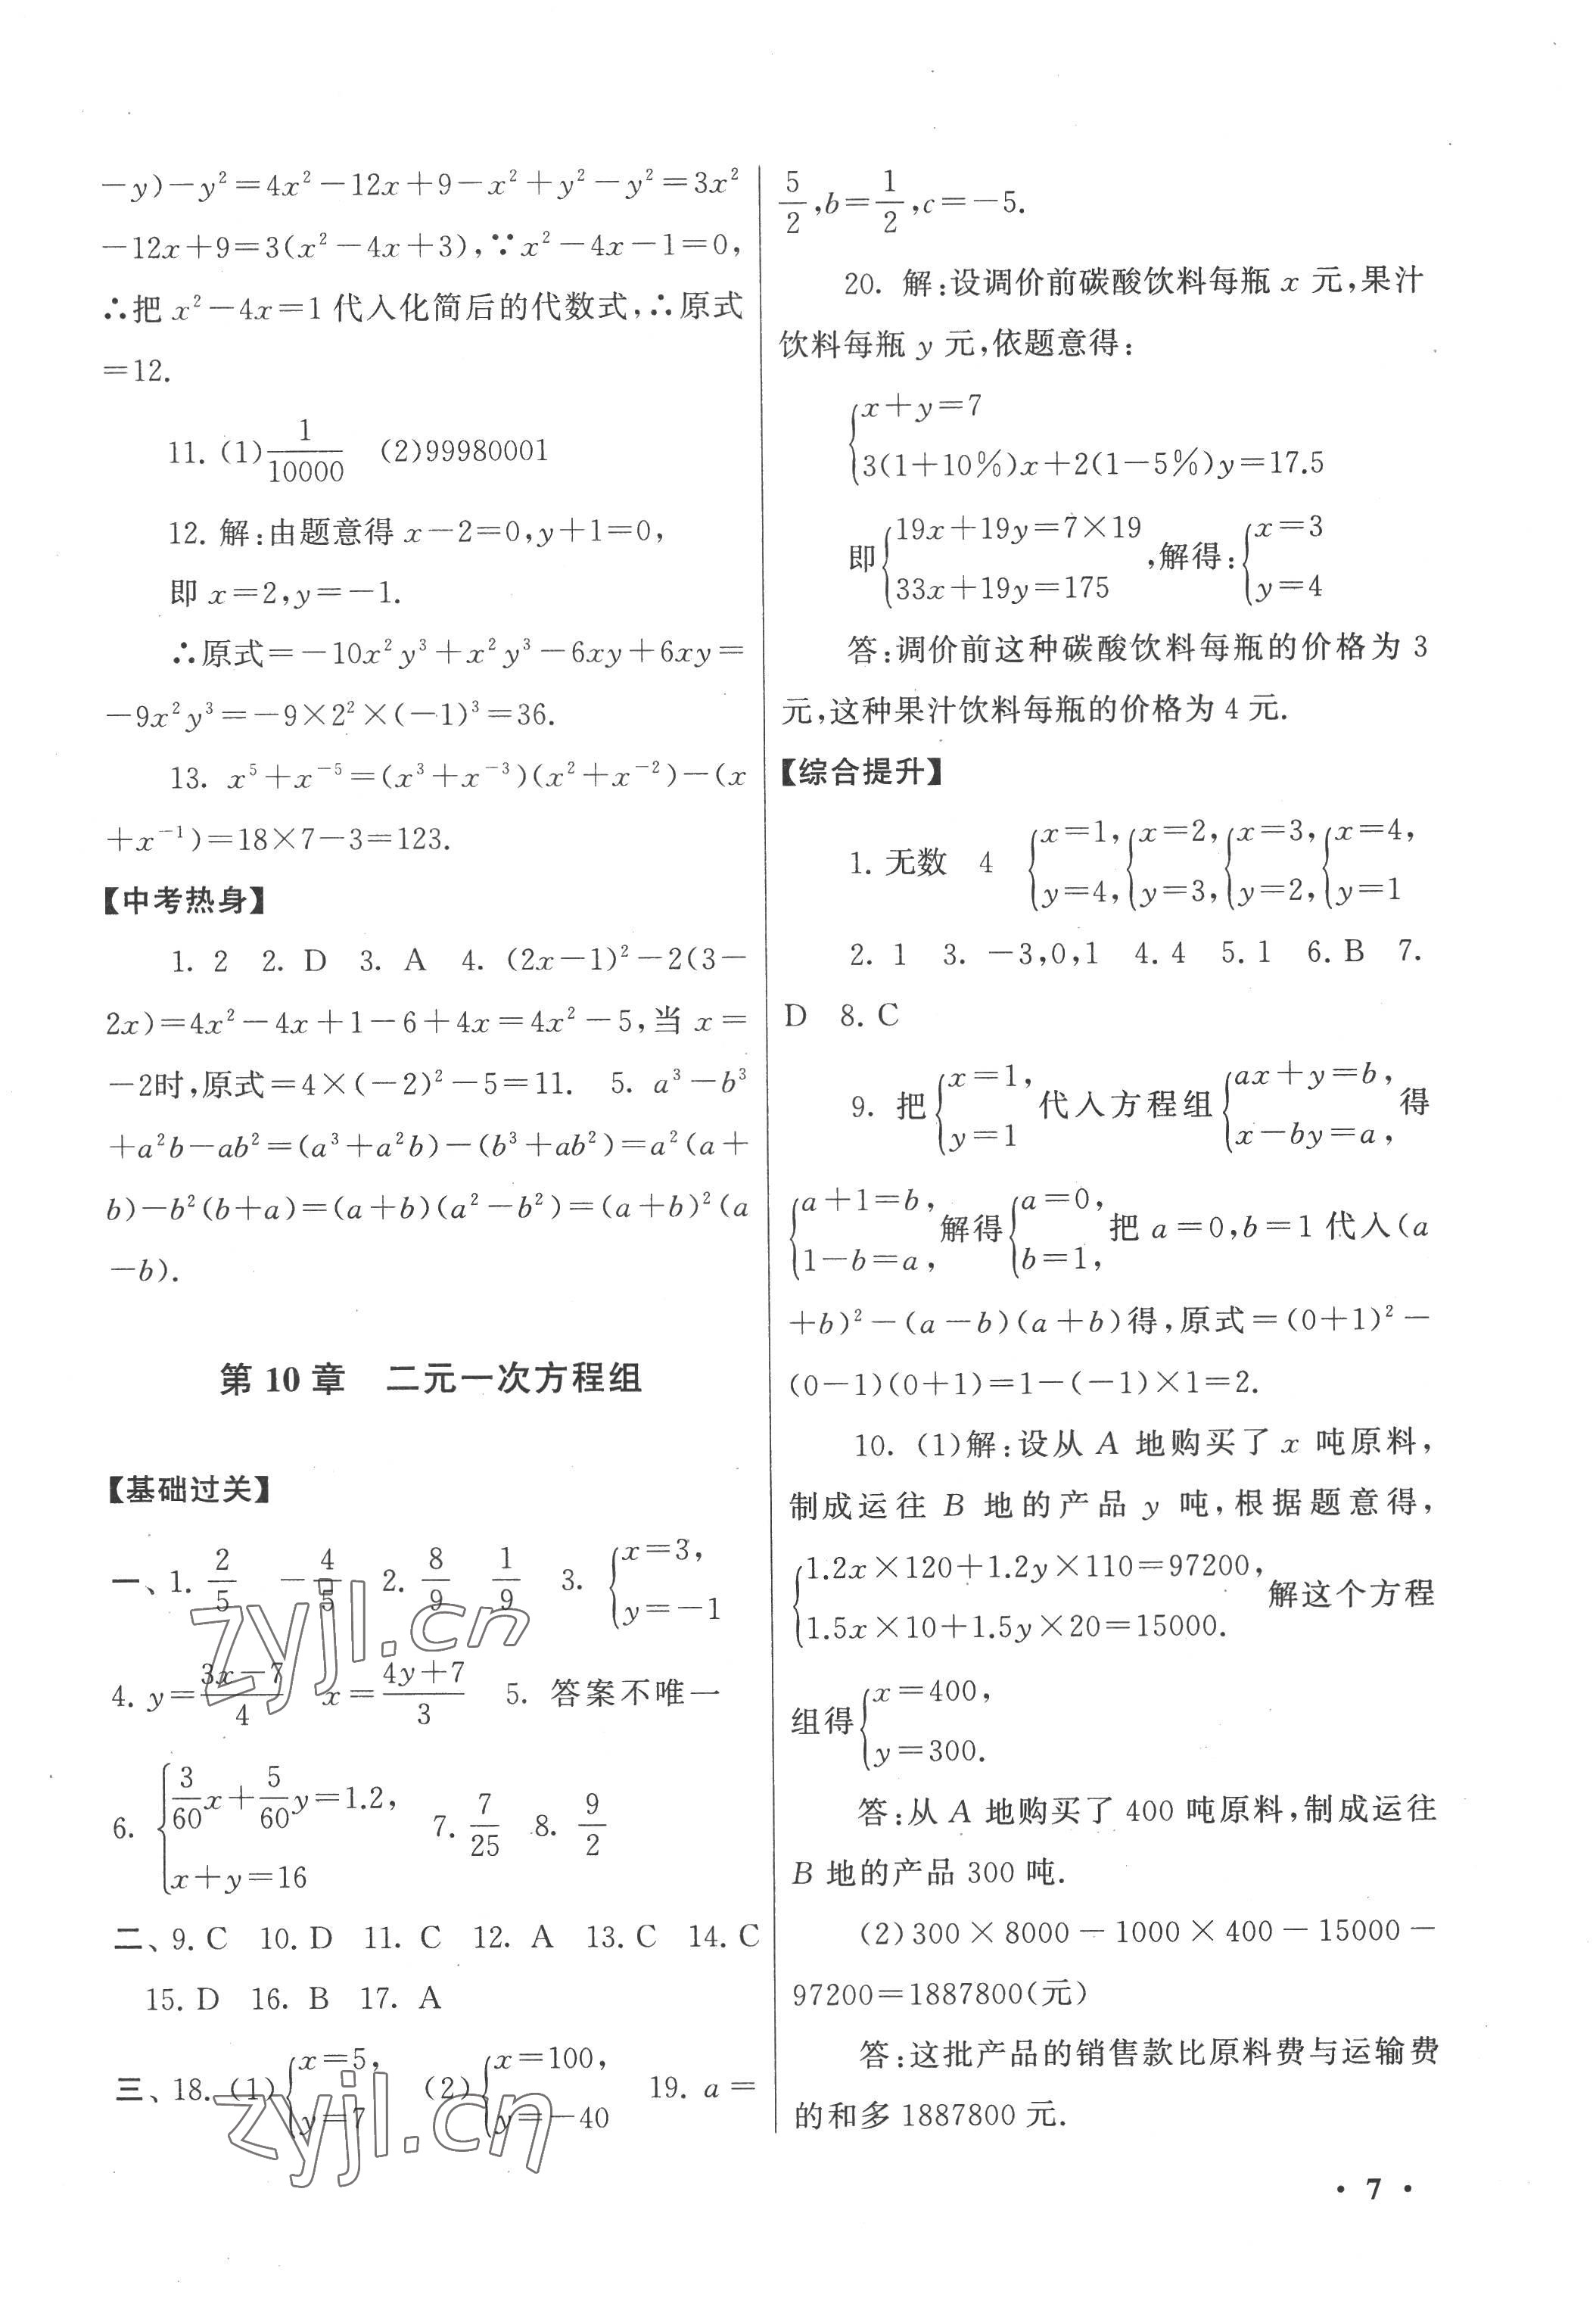 －y)－y²＝4x²－12x＋9－x²＋y²－y²＝3x²
－12x＋9＝3(x²－4x＋3),∵x²－4x－1＝0,
∴把 x²－4x＝1 代入化简后的代数式,∴原式
＝12.
11. (1)1/10000 (2)99980001
12. 解:由题意得 x－2＝0,y＋1＝0,
即 x＝2,y＝－1.
∴原式＝－10x²y³＋x²y³－6xy＋6xy＝
－9x²y³＝－9×2²×(－1)³＝36.
13. x⁵＋x⁻⁵＝(x³＋x⁻³)(x²＋x⁻²)－(x
＋x⁻¹)＝18×7－3＝123.
【中考热身】
1. 2 2. D 3. A 4. (2x－1)²－2(3－
2x)＝4x²－4x＋1－6＋4x＝4x²－5,当 x＝
－2时,原式＝4×(－2)²－5＝11. 5. a³－b³
＋a²b－ab²＝(a³＋a²b)－(b³＋ab²)＝a²(a＋
b)－b²(b＋a)＝(a＋b)(a²－b²)＝(a＋b)²(a
－b).
第 10 章 二元一次方程组
【基础过关】
一、1. 2/5 －4/5 2. 8/9 1/9 3. {x＝3, y＝－1
4. y＝(3x－7)/4 x＝(4y＋7)/3 5. 答案不唯一
6. {3/60x＋5/60y＝1.2, x＋y＝16 7. 7/25 8. 9/2
二、9. C 10. D 11. C 12. A 13. C 14. C
15. D 16. B 17. A
三、18. (1){x＝5, y＝7 (2){x＝100, y＝－40 19. a＝
5/2,b＝1/2,c＝－5.
20. 解:设调价前碳酸饮料每瓶 x 元,果汁
饮料每瓶 y 元,依题意得:
{x＋y＝7
3(1＋10%)x＋2(1－5%)y＝17.5
即{19x＋19y＝7×19 33x＋19y＝175,解得:{x＝3 y＝4
答:调价前这种碳酸饮料每瓶的价格为 3
元,这种果汁饮料每瓶的价格为 4 元.
【综合提升】
1. 无数 4 {x＝1, y＝4,{x＝2, y＝3,{x＝3, y＝2,{x＝4, y＝1
2. 1 3. －3,0,1 4. 4 5. 1 6. B 7.
D 8. C
9. 把{x＝1, y＝1 代入方程组{ax＋y＝b, x－by＝a,得
{a＋1＝b, 1－b＝a,解得{a＝0, b＝1,把 a＝0,b＝1 代入(a
＋b)²－(a－b)(a＋b)得,原式＝(0＋1)²－
(0－1)(0＋1)＝1－(－1)×1＝2.
10. (1)解:设从 A 地购买了 x 吨原料,
制成运往 B 地的产品 y 吨,根据题意得,
{1.2x×120＋1.2y×110＝97200, 1.5x×10＋1.5y×20＝15000.解这个方程
组得{x＝400, y＝300.
答:从 A 地购买了 400 吨原料,制成运往
B 地的产品 300 吨.
(2)300×8000－1000×400－15000－
97200＝1887800(元)
答:这批产品的销售款比原料费与运输费
的和多 1887800 元.
zyjl.cn
zyjl.cn
· 7 ·